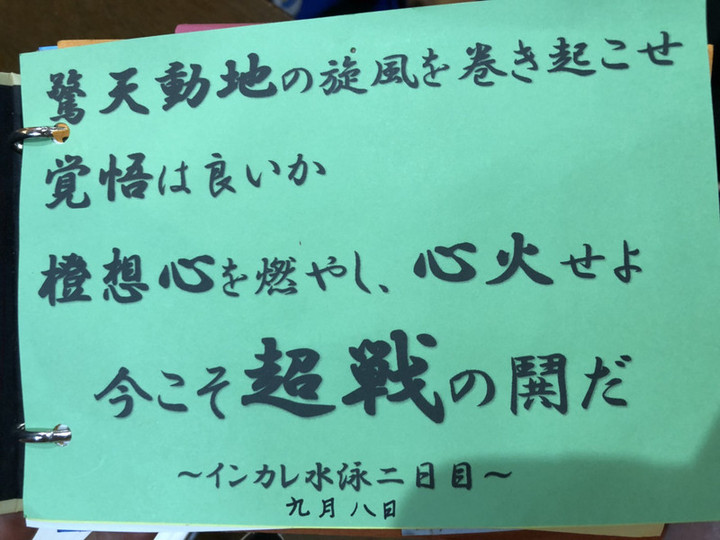 驚天動地の旋風を巻き起こせ
覚悟は良いか
橙想心を燃やし、心火せよ
今こそ超戦の鬨だ
～インカレ水泳二日目～
九月八日